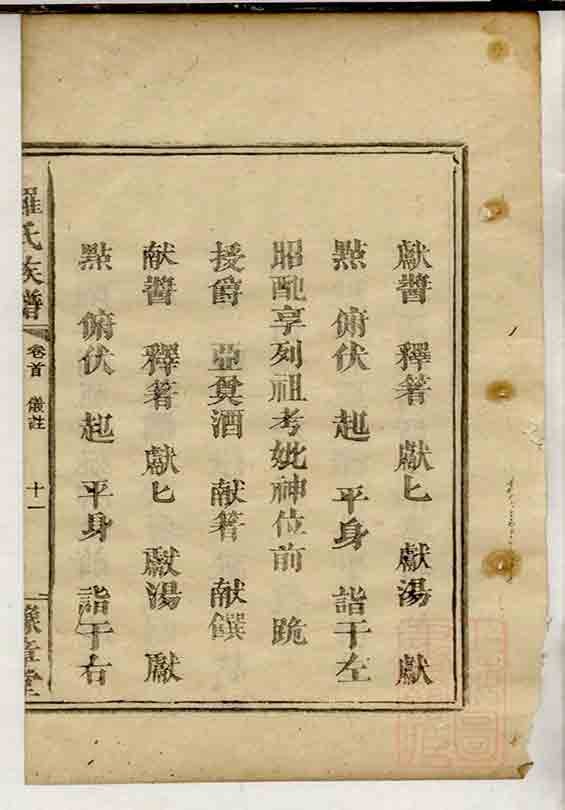 獻醬 釋箸 獻匕 獻湯 獻
點 俯伏 起 平身 詣于左
昭配享列祖考妣神位前 跪
授爵 亞奠酒 献箸 献饌
献醬 釋箸 獻匕 獻湯 獻
點 俯伏 起 平身 詣于右
羅氏族譜 卷首 儀註 十一 豫章堂